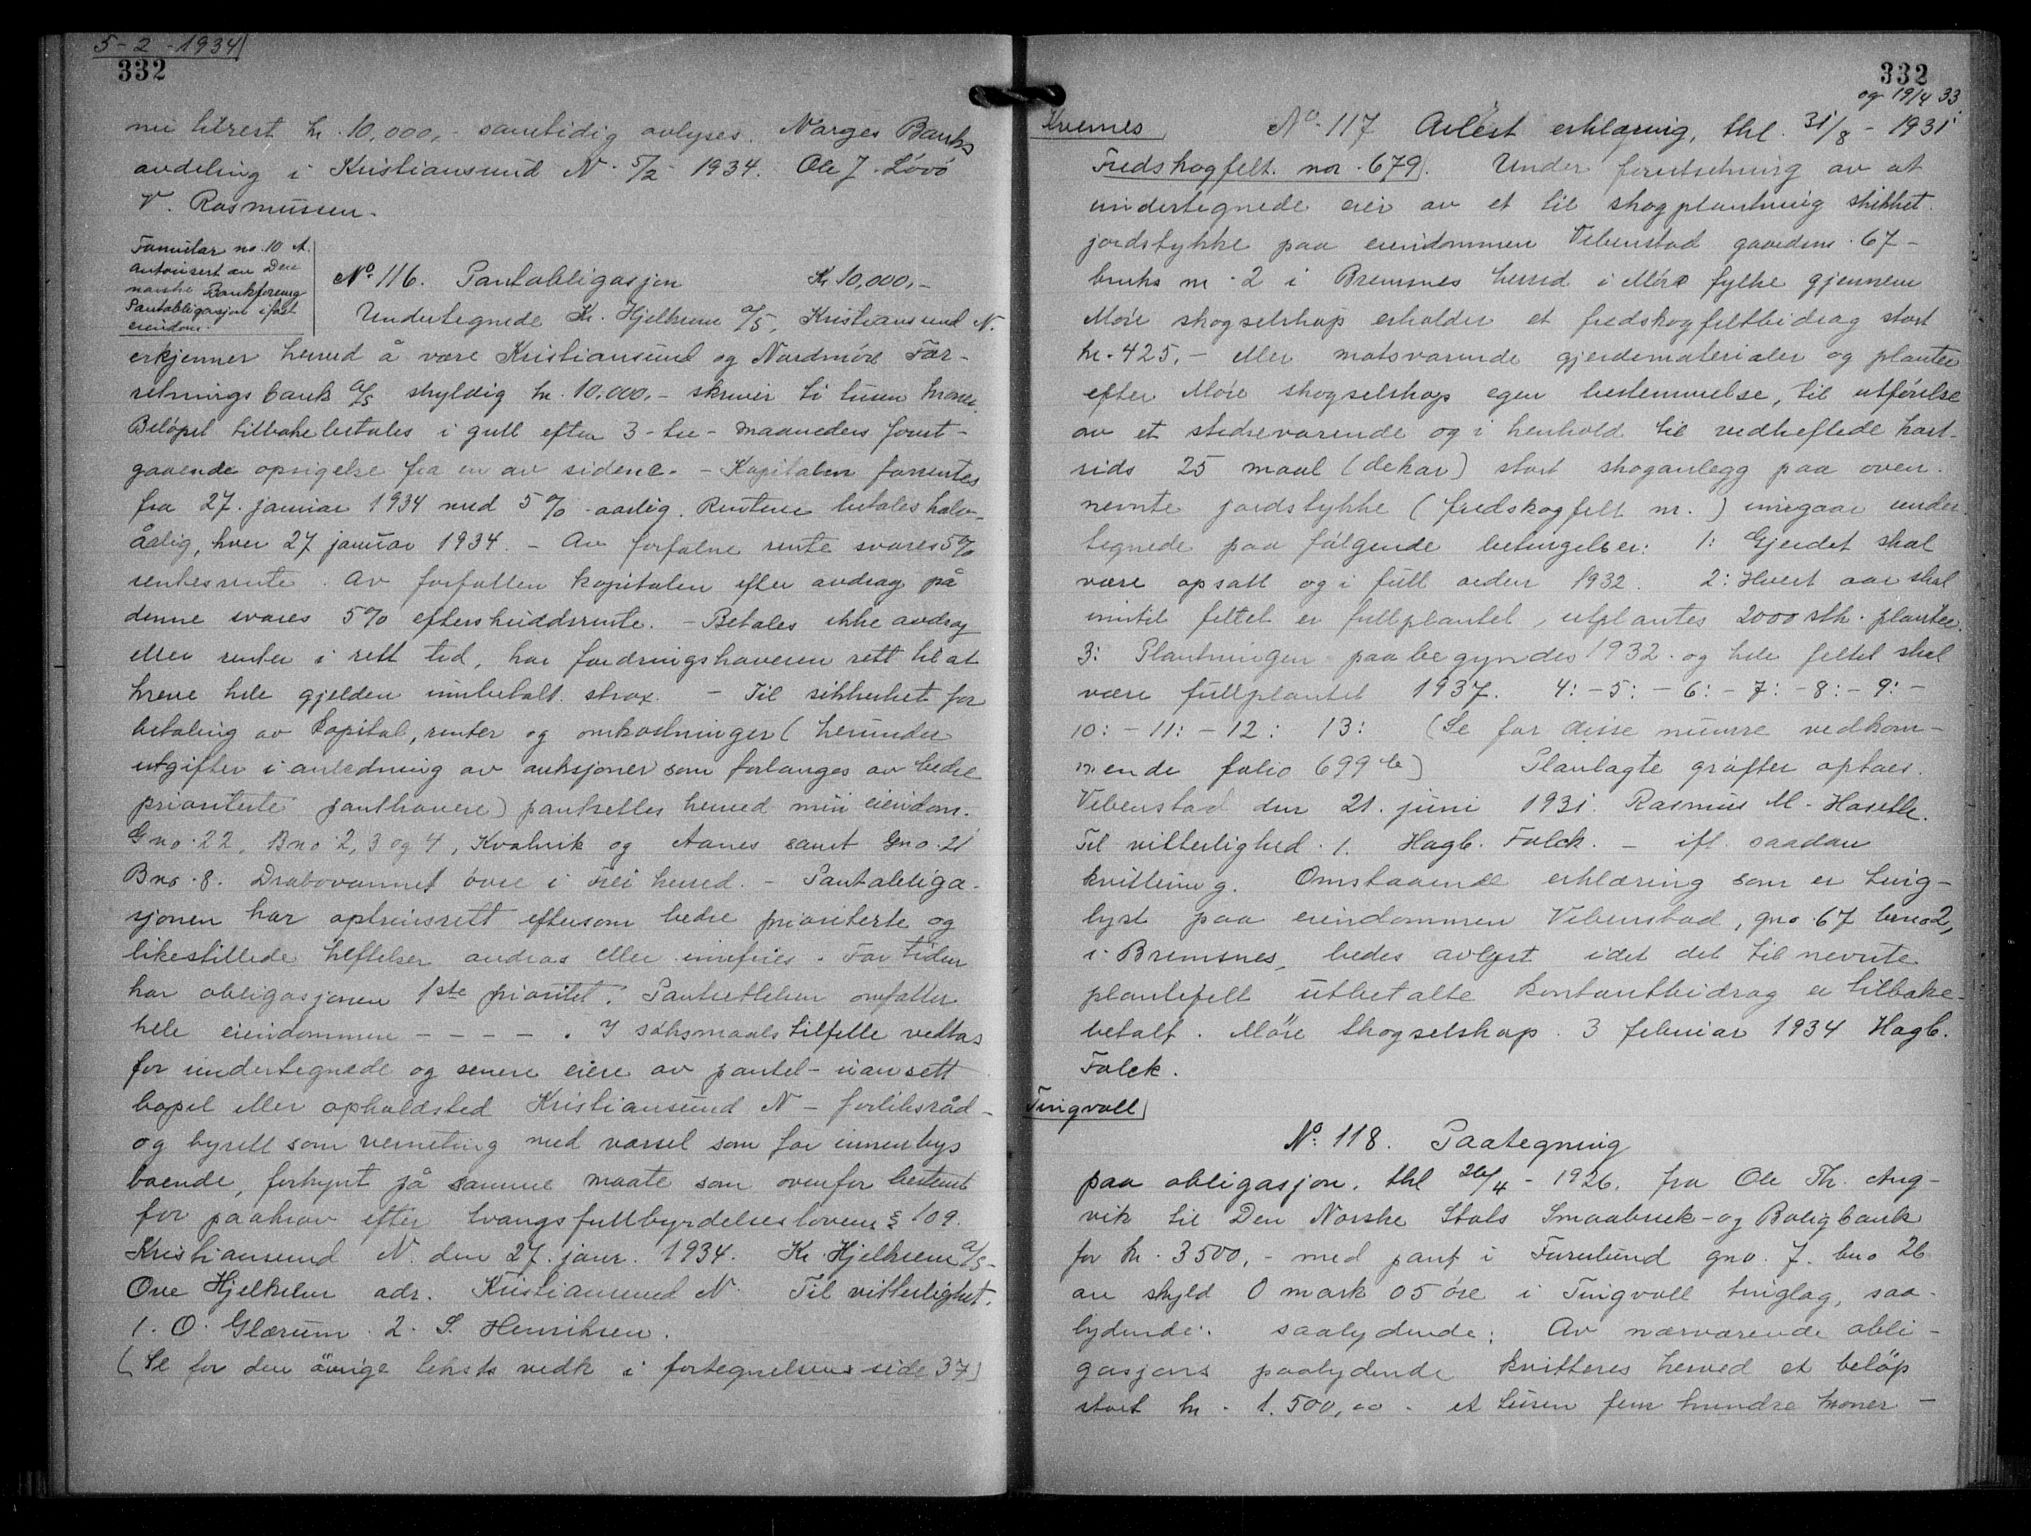 5-2-1934
332
nu litrest kr. 10,000,- samtidig avlyses. Norges Banks
avdeling i Kristiansund N. 5/2 - 1934. Ole J. Lövö
V. Rasmussen.
Formular no. 10 A.
Autorisert av Den
norske Bankforening
Pantobligasjon i fast
eiendom.
No. 116. Pantobligasjon Kr 10,000,-
Undertegnede Kr. Hjelkrem A/S, Kristiansund N.
erkjenner herved å være Kristiansund og Nordmöre For-
retningsbank A/S skyldig kr. 10.000,- skriver ti tusen kroner.
Belöpet tilbakebetales i gull efter 3-tre- maaneders forut-
gaaende opsigelse fra en av sidene. - Kapitalen forrentes
fra 27. januar 1934 med 5 % aarlig. Rentene betales halv-
årlig, hver 27 januar 1934. - Av forfalne rente svares 5%
rentesrente. Av forfallen kapitalen efter avdrag på
denne svares 5% efterskuddsrente. - Betales ikke avdrag
eller renter i rett tid, har fordringshaveren rett til at
kreve hele gjelden innbetalt strax. - Til sikkerhet for
betaling av kapital, renter og omkostninger (herunder
utgifter i anledning av auksjoner som forlanges av bedre
prioriterte panthavere) pantsettes herved min eiendom.
Gno. 22, Bno. 2, 3 og 4, Kvalvik og Aanes samt Gno. 21
Bno. 8. Drabovannet övre i Frei herred. - Pantobliga-
sjonen har optrinsrett eftersom bedre prioriterte og
likestillede heftelser avdras eller innfries. For tiden
har obligasjonen 1ste prioritet. Pantsettelsen omfatter
hele eiendommen - - - - . I söksmaals tilfelle vedtas
for undertegnede og senere eiere av pantet - uansett
bopel eller opholdsted Kristiansund N - forliksråd-
og byrett som verneting med varsel som for innenbys
boende, forkynt på samme maate som ovenfor bestemt
for paakrav efter tvangsfullbyrdelsesloven § 109.
Kristiansund N. den 27. janr. 1934. Kr. Hjelkrem A/S-
Ove Hjelkrem adr. Kristiansund N. Til vitterlighet.
1. O. Glærum. 2. S. Henriksen.
(Se for den övrige teksts vedk i fortegnelsens side 37)
332
og 19/4 33
Kvernes
No. 117 Avlest erklæring, thl. 31/8 - 1931
Fredskogfelt. nr. 679. Under forutsetning av at
undertegnede eier av et til skogplantning skikket
jordstykke paa eiendommen Vebenstad gaardsnr. 67-
bruks nr. 2 i Bremsnes herred i Möre fylke gjennem
Möre skogselskap erholder et fredskogfeltbidrag stort
kr. 425,- eller motsvarende gjerdematerialer og planter
efter Möre skogselskaps egen bestemmelse, til utförelse
av et stedsevarende og i henhold til vedheftede kart-
rids 25 maal (dekar) stort skoganlegg paa oven-
nevnte jordstykke (fredskogfelt nr. ) inngaar under
tegnede paa fölgende betingelser: 1: Gjerdet skal
være opsatt og i full orden 1932. 2: Hvert aar skal
inntil feltet er fullplantet, utplantes 2000 stk. planter.
3: Plantningen paabegyndes 1932. og hele feltet skal
være fullplantet 1937. 4: - 5: - 6: - 7: - 8: - 9: -
10: - 11: - 12: 13: (Se for disse numre vedkom-
mende folio 699 b) Planlagte gröfter optaes.
Vebenstad den 21. juni 1931. Rasmus M. Haselle.
Til vitterlighed. 1. Hagb. Falck. - ifl. saadan
kvittering. Omstaaende erklæring som er ting-
lyst paa eiendommen Vebenstad, gno. 67 bno 2,
i Bremsnes, bedes avlyst idet det til nevnte
plantefelt utbetalte kontantbidrag er tilbake-
betalt. Möre Skogselskap. 3 februar 1934 Hagb.
Falck.
Tingvoll
No. 118. Paategning
paa obligasjon, thl 26/4 - 1926. fra Ole Th. Ang-
vik til Den Norske Stats Smaabruk- og Boligbank
for kr. 3500,- med pant i Furulund gno. 7. bno 26
av skyld 0 mark 05 öre i Tingvoll tinglag, saa-
lydende: saalydende: Av nærværende obli-
gasjons paalydende kvitteres herved et belöp
stort kr. 1.500,00 - et tusen fem hundre kroner -